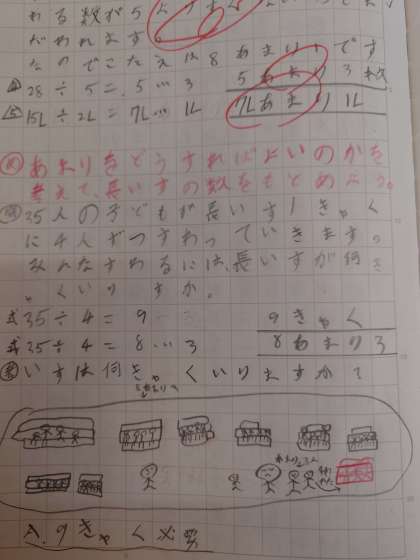 われます。
なのでこたえは8あまり1です
④ 28÷5=5…3 5あまり3
⑤ 15L÷2L=7L…1L 7Lあまり1L
め あまりをどうすればよいのかを
考えて、長いすの数をもとめよう。
問 35人の子どもが長いす1きゃく
に4人ずつすわっていきます。
みんなすわるには、長いすが何き
ゃくいりますか。
式 35÷4=9 9きゃく
式 35÷4=8…3 8あまり3
いすは何きゃくいりますか?
A.9きゃく必要